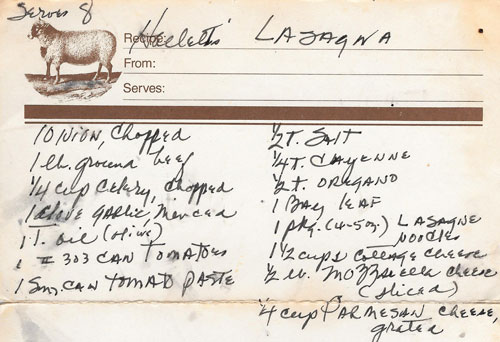 Serves 8
Recipe: LASAGNA
From:
Serves:
1 ONION, Chopped
1 lb. ground beef
1/4 cup Celery, chopped
1 clove GARLIC, Minced
1 T. oil (olive)
1 # 303 CAN TOMATOES
1 Sm. CAN TOMATO PASTE
1/2 t. SALT
1/4 t. CAYENNE
1/2 t. OREGANO
1 BAY leaf
1 pkg. (4-5 oz.) LASAGNE
NOODLES
1 1/2 cups Cottage Cheese
1/2 lb. MOZZARELLA cheese
(sliced)
1/4 cup PARMESAN CHEESE,
grated